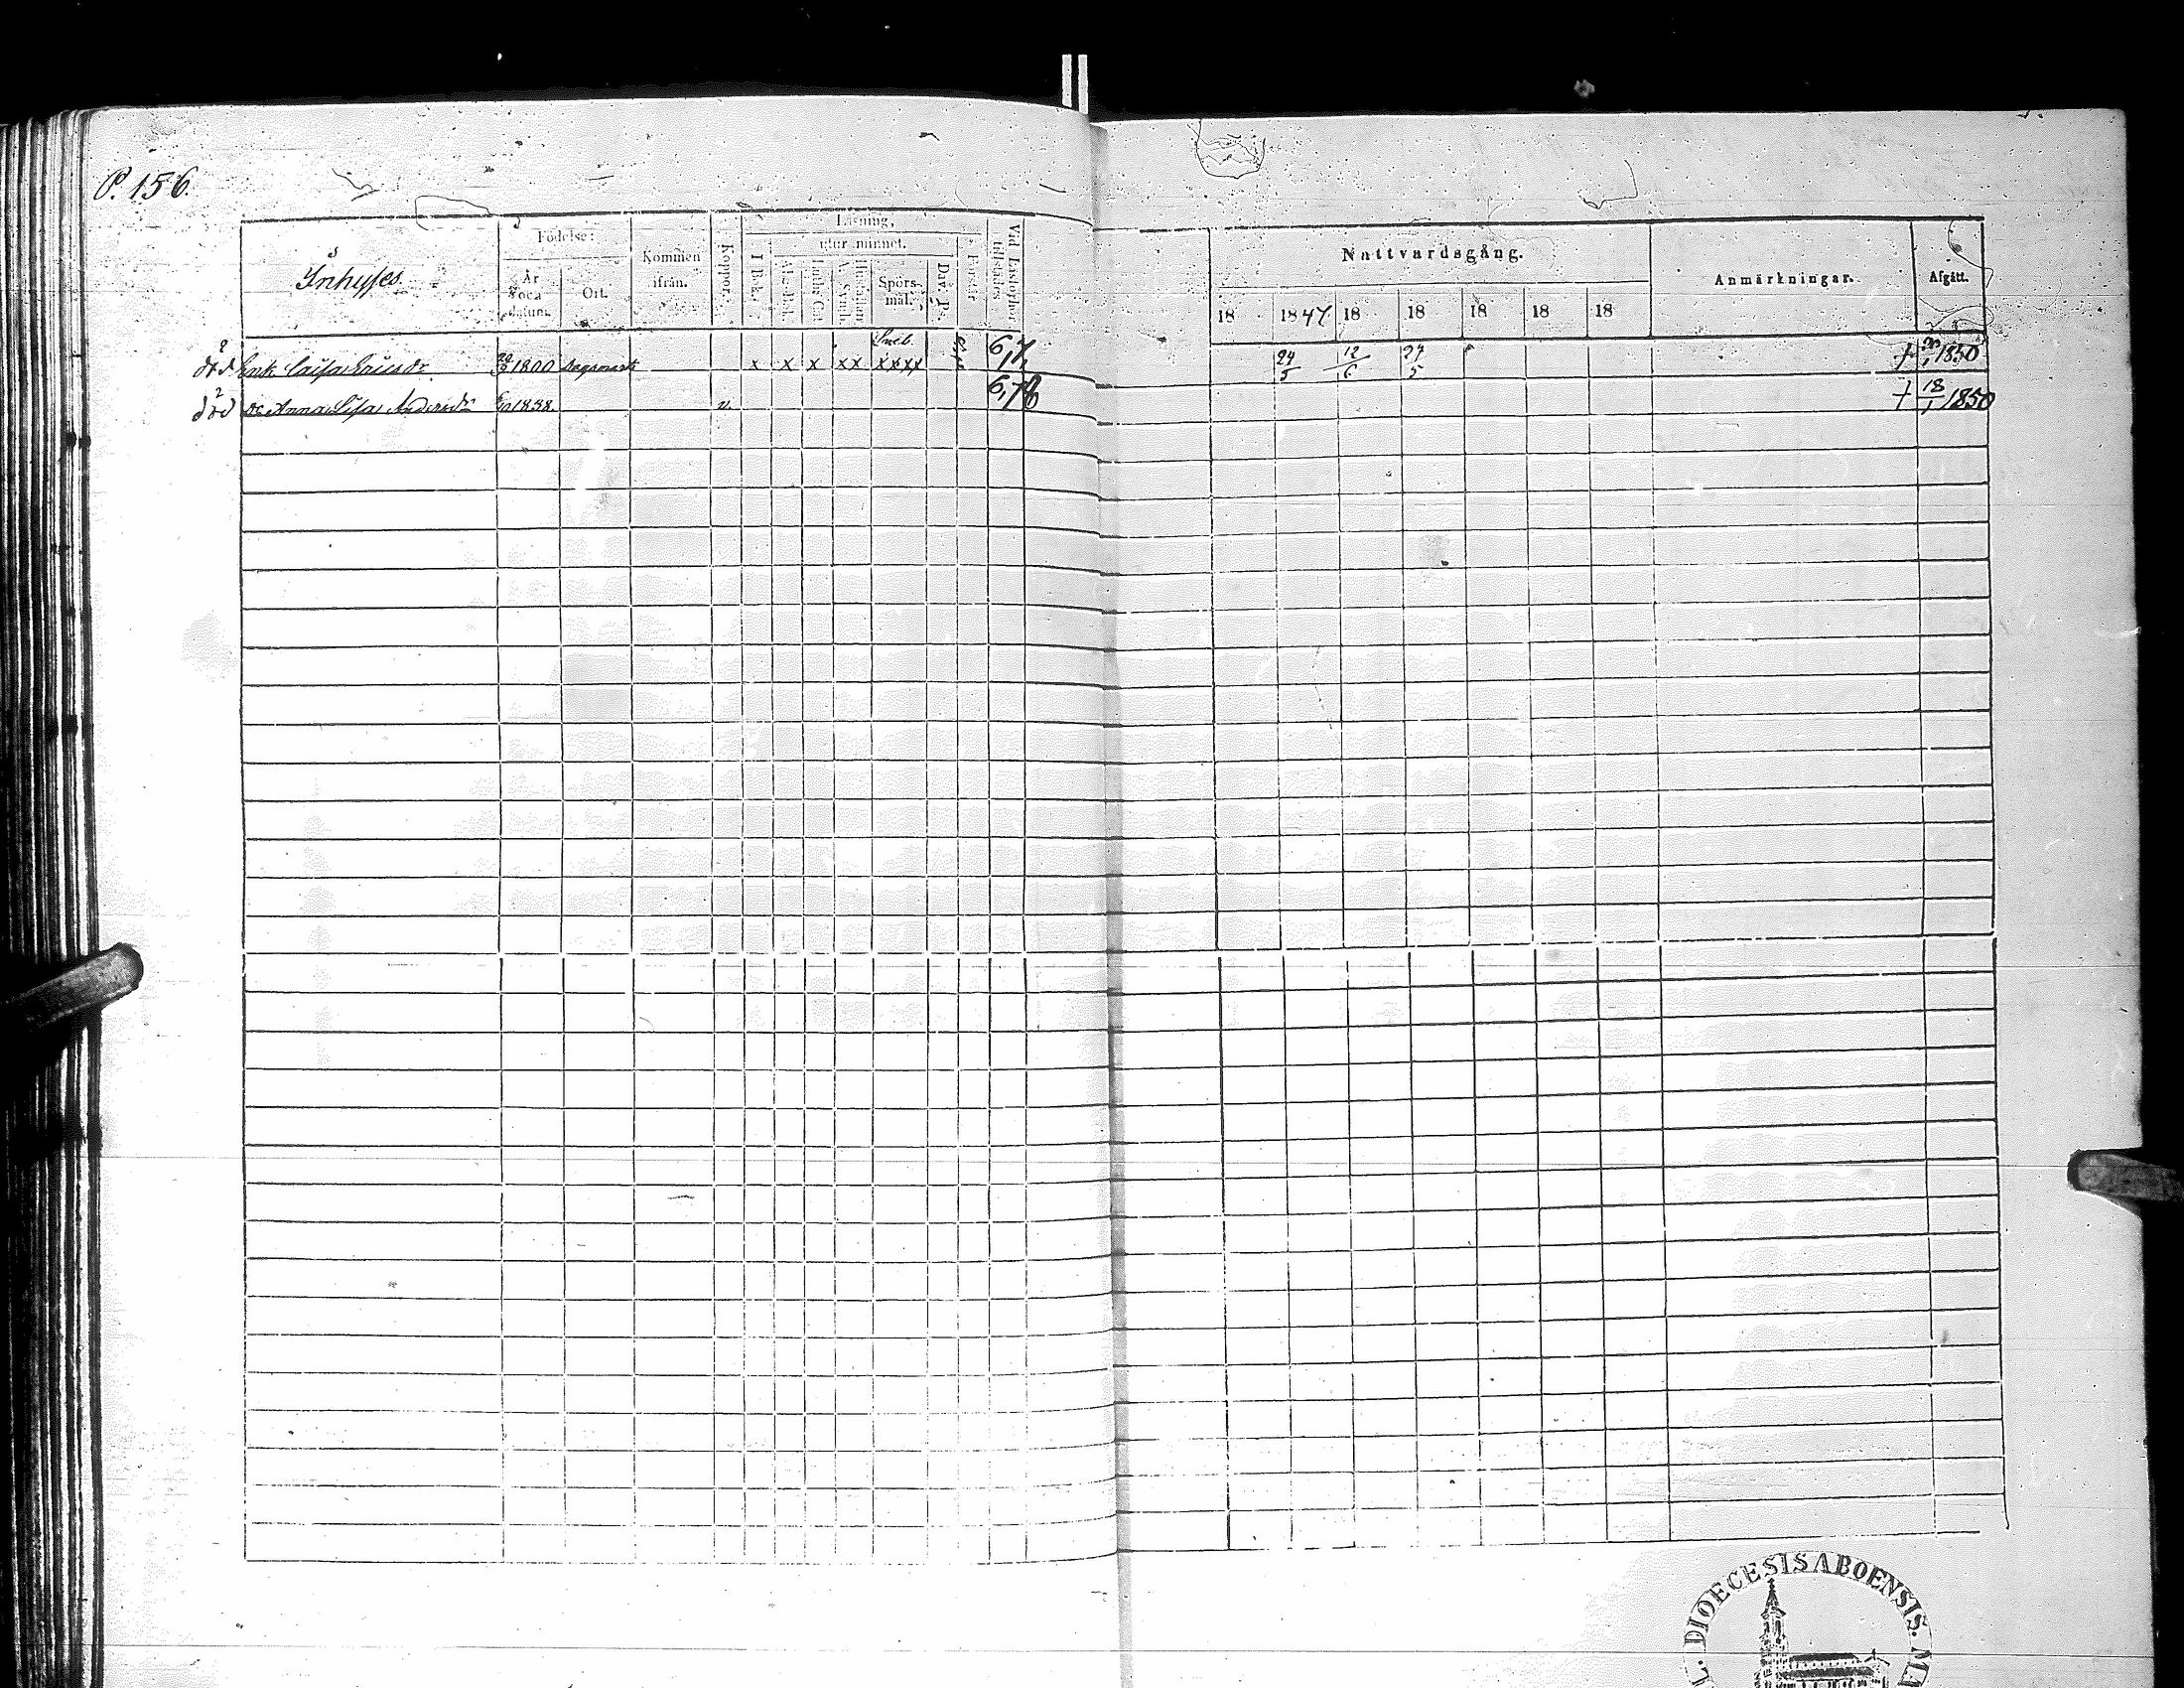 P. 156.
Inhyses
Födelse:
År och datum.
Ort.
Kommen ifrån.
Koppor.
Läsning,
utur minnet.
I Bok.
Abc-Bok.
Luth. Cat.
Hustaflan
A. Symb.
Spörs-mål.
Dav. Ps.
Förstår
Vid Läseförhör tillstädes
Nattvardsgång.
18 1847 18 18 18 18 18
Anmärkningar.
Afgått.
död Enk. Caisa Ericsdr 1800 Dagsmark x x x xx xxxx 6,7, 24/5 12/6 27/5 † 1850
död Dr Anna Lisa Andersdr 1838. v. 6,7,8 † 18/1 1850
DIOECESIS ABOENSIS.